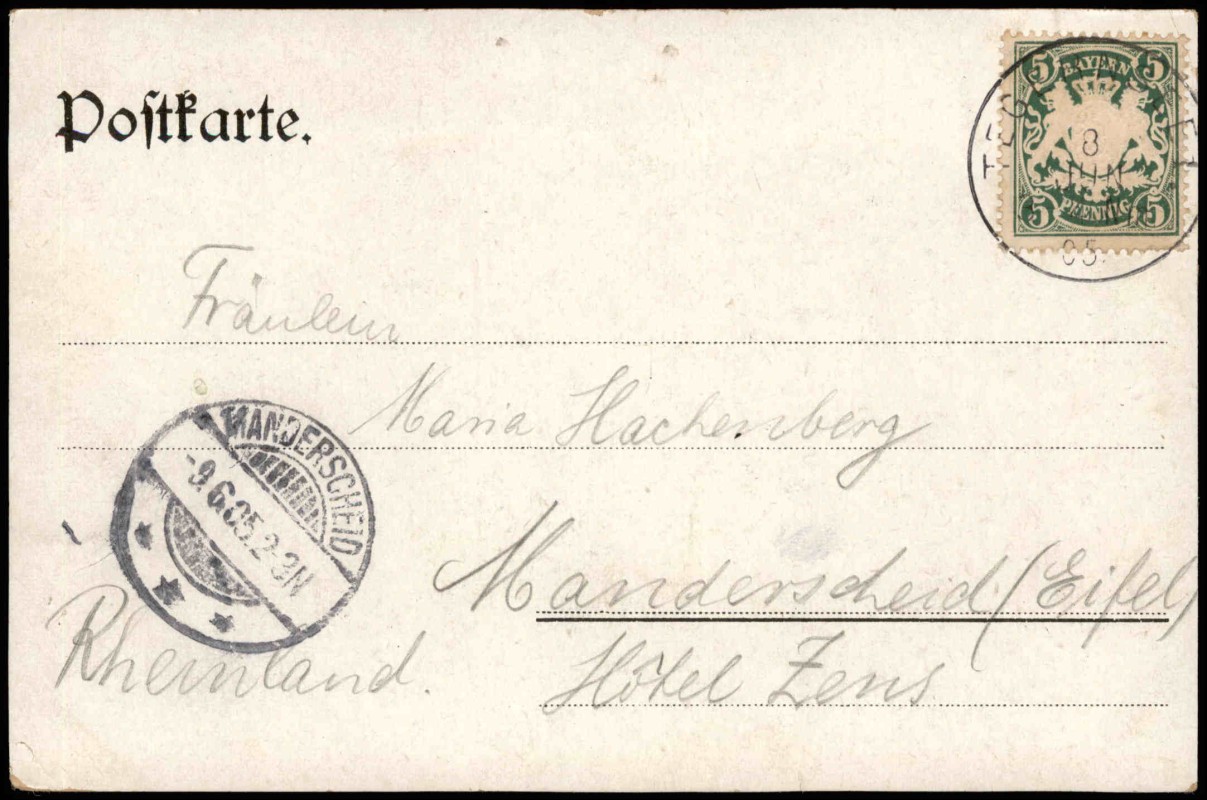 Postkarte.
5 BAYERN 5
8
JUN
5 PFENNIG 5
05.
Fräulein
Maria Hachenberg
MANDERSCHEID
-9.6.05.2-3N
Manderscheid (Eifel)
Rheinland.
Hôtel Zens